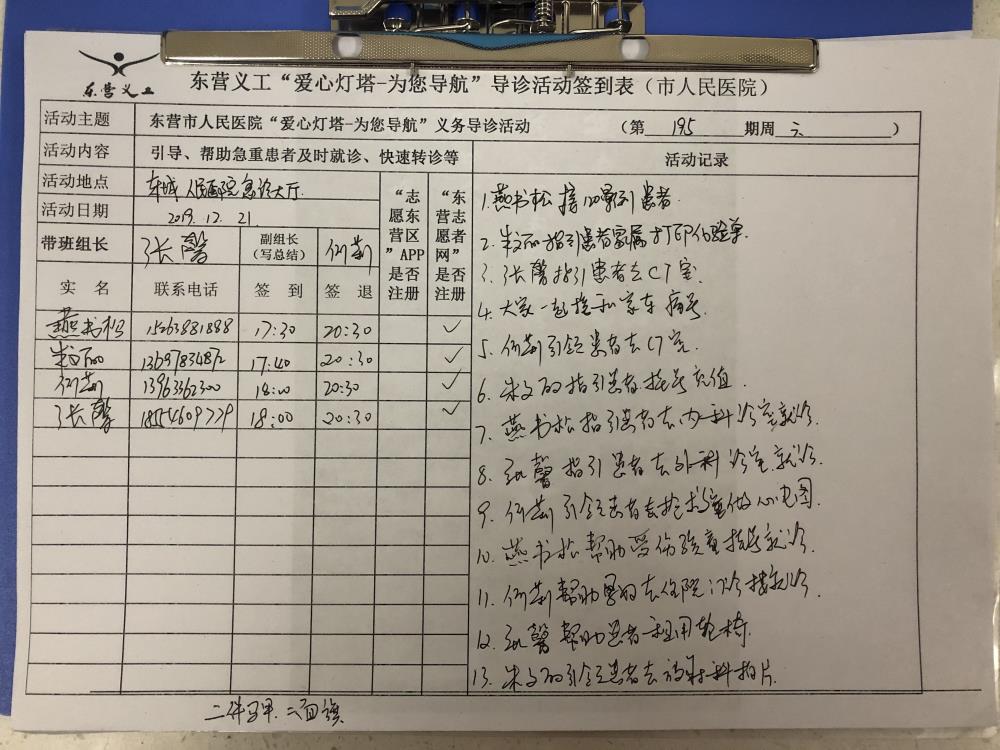 东营义工
东营义工“爱心灯塔-为您导航”导诊活动签到表（市人民医院）
活动主题 东营市人民医院“爱心灯塔-为您导航”义务导诊活动 （第 195 期周 六 ）
活动内容 引导、帮助急重患者及时就诊、快速转诊等
活动地点 东城人民医院急诊大厅
活动日期 2019.12.21.
带班组长 张馨 副组长（写总结） 何荊
“志愿东营区”APP是否注册
“东营志愿者网”是否注册
实名 联系电话 签到 签退
燕书松 15263881898 17:30 20:30 ✓
朱文丽 13697834872 17:40 20:30 ✓
何荊 13963362300 18:00 20:30 ✓
张馨 18554609779 18:00 20:30 ✓
活动记录
1.燕书松 接120 引患者
2.朱文丽指引患者家属打印化验单.
3.张馨指引患者去CT室.
4.大家一起 病号.
5.何荊引领患者去CT室.
6.朱文丽指引患者挂号充值.
7.燕书松指引患者去内科诊室就诊.
8.张馨指引患者去外科诊室就诊.
9.何荊引领患者去抢救室做心电图.
10.燕书松帮助受伤孩童挂号就诊.
11.何荊帮助 去住院门诊楼就诊.
12.张馨帮助患者租用轮椅.
13.朱文丽引领患者去放射科拍片.
二件马甲.二面旗